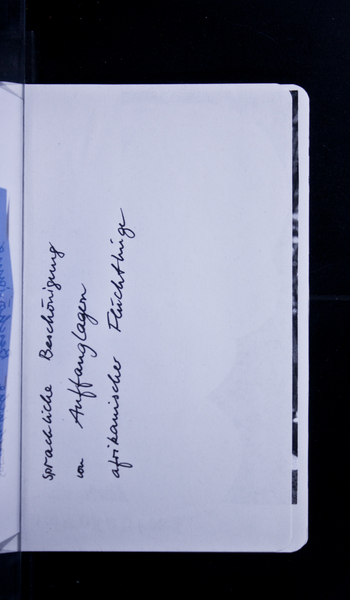 sprachliche Beschönigung
von Auffanglagern
afrikanischer Flüchtlinge